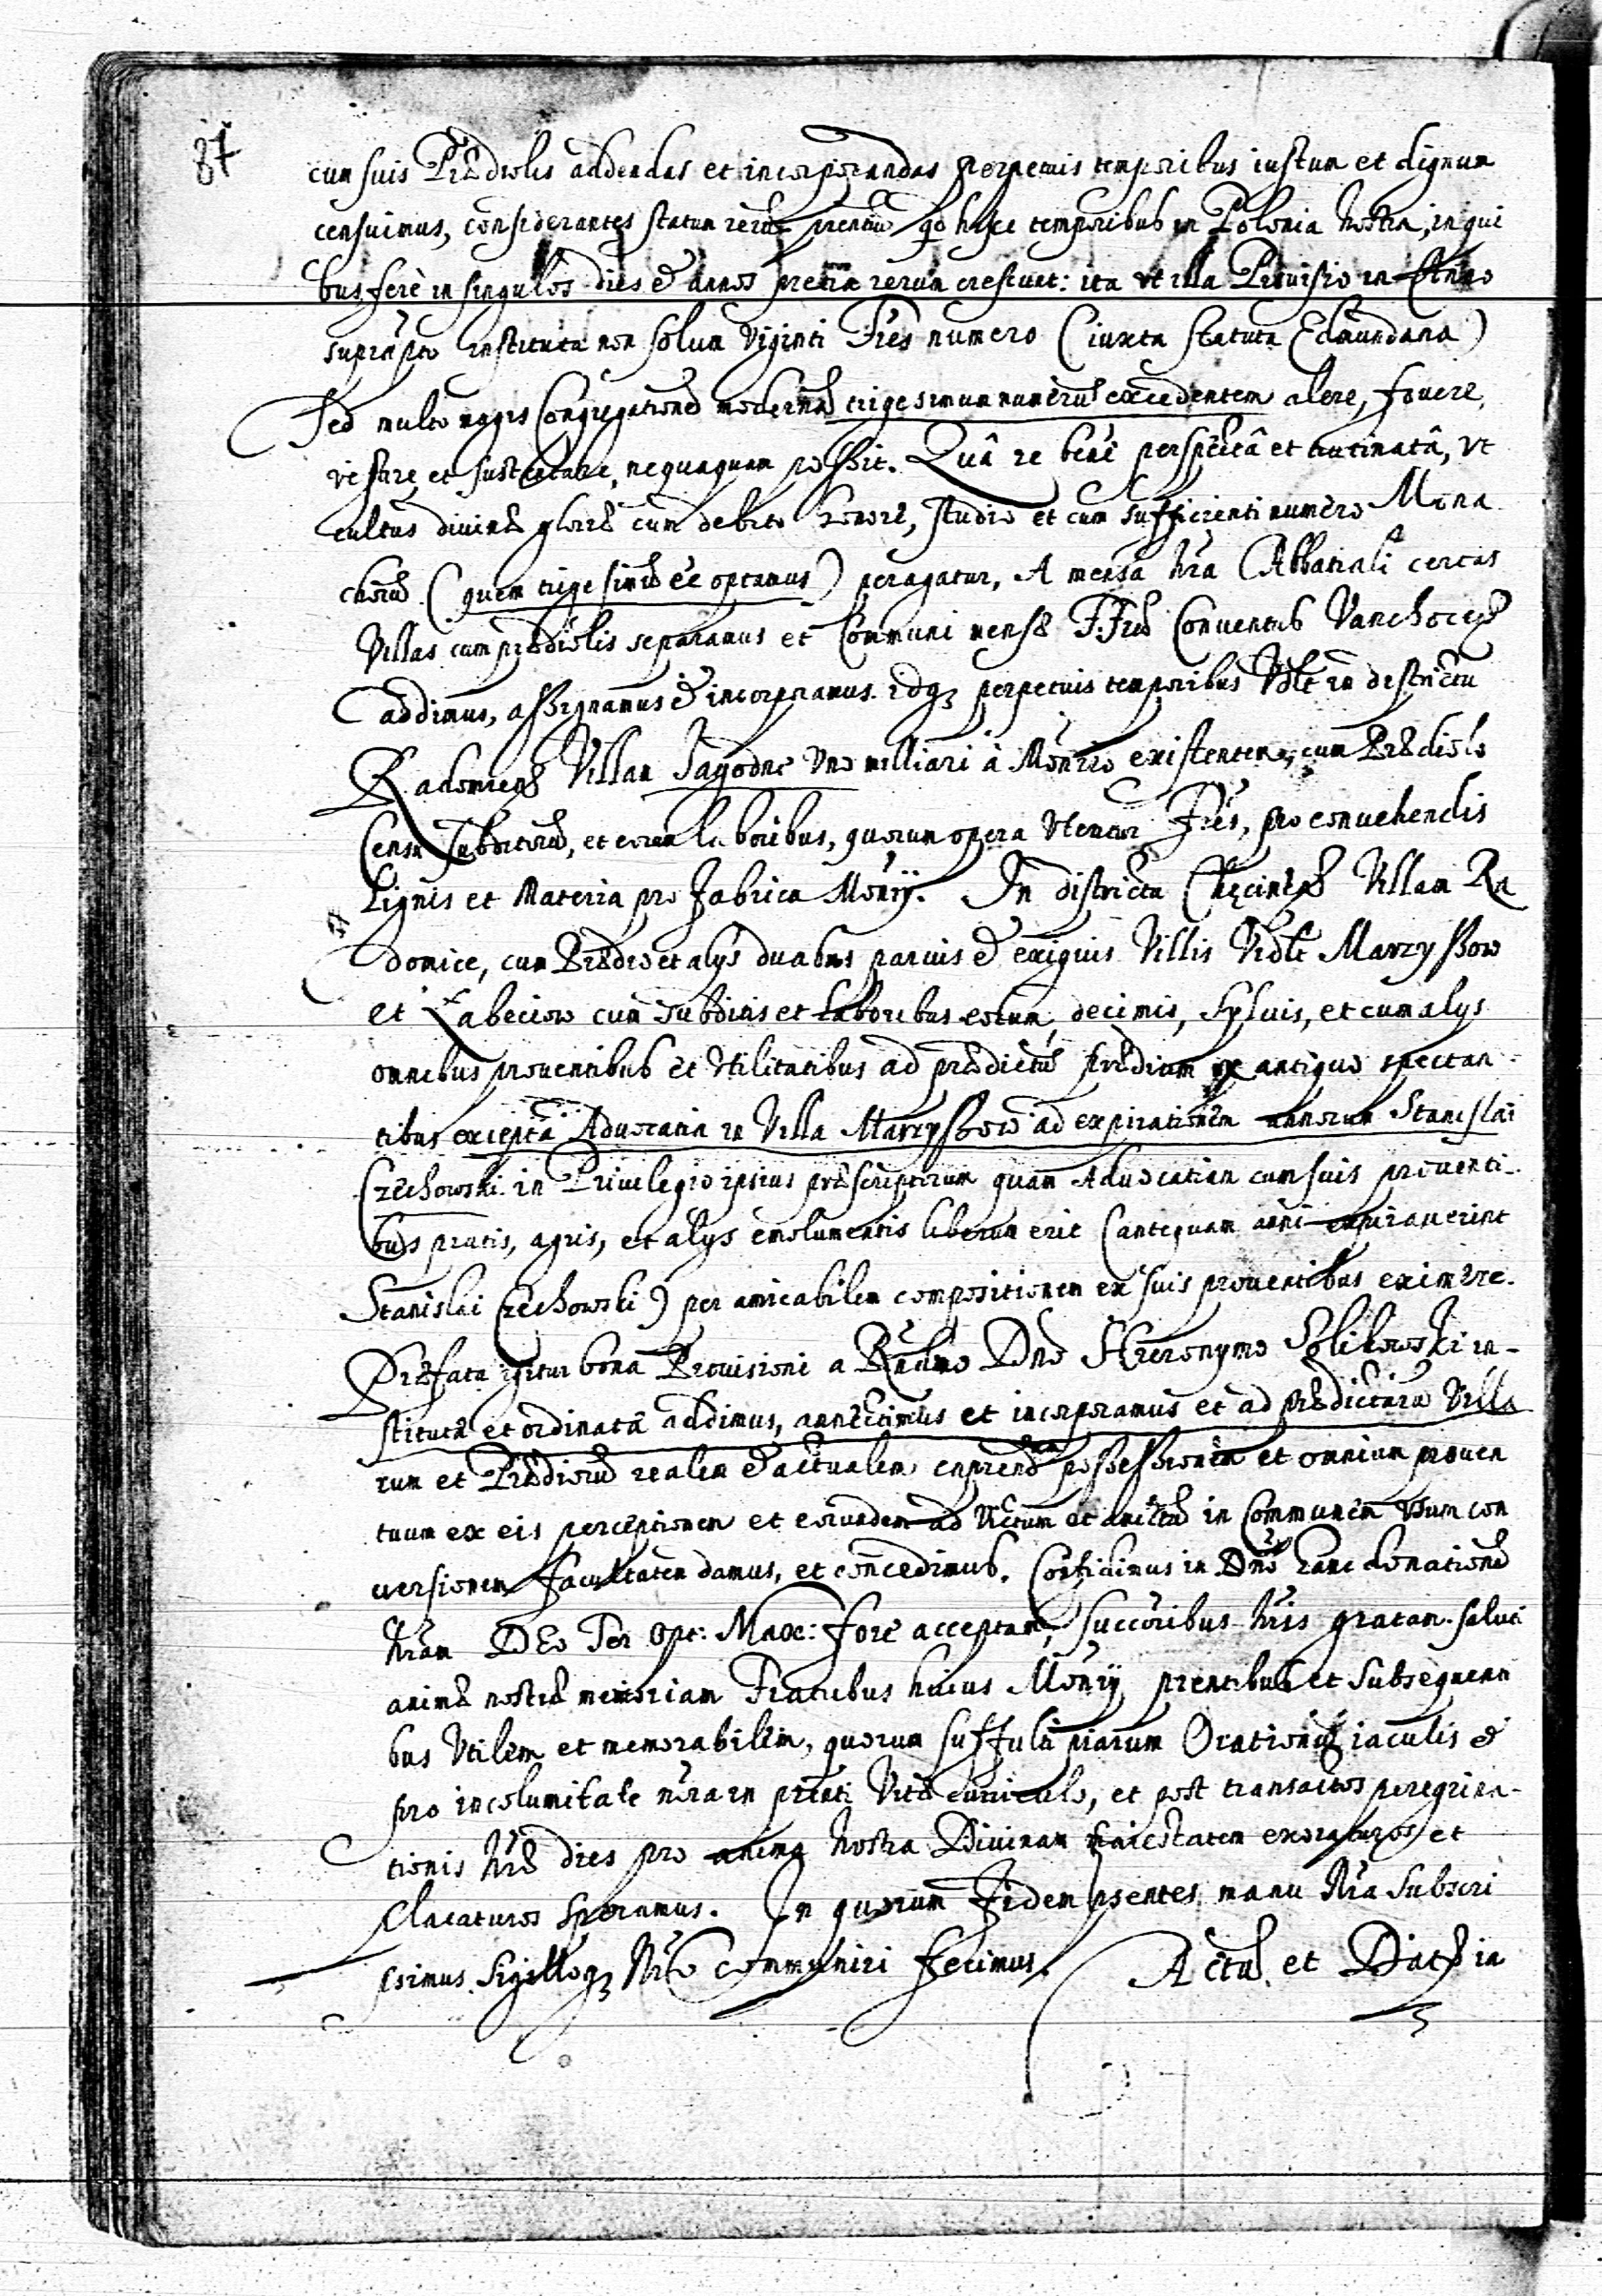 87
cum suis Prædiolis addendas et incorporandas perpetuis temporibus iustum et dignum
censuimus, considerantes statum rerũ prẽntiũ qd hisce temporibus in Polonia nostra, in qui
bus ferè in singulos dies & annos pretia rerum crescunt: ita vt illa Prouisio in Anno
suprapto instituta non solum Viginti Frẽs numero (iuxta statuta Edmundana)
Sed multo magis Congregationẽ modernã trigesimum numerũ excedentem alere, fouere,
vestire, et sustentare, nequaquam possit. Quâ re benè perspectâ et trutinatâ, vt
cultus diuinæ gloriæ cum debito honore, studio et cum sufficienti numero Mona
chorũ (quem trigesimũ eẽ optamus) peragatur, A mensa nrã Abbatiali certas
Villas cum prædiolis separamus et Communi mensæ F.Frũ Conuentus Vanchocen
addimus, assignamus & incorporamus. Idq; perpetuis temporibus Vdlt in districtu
Radomien Villam Jagodne Vno milliari à Monrio existentem, cum Prædiolo
Censu Subditorũ, et eorum laboribus, quorum opera Vtentur Frẽs, pro conuehendis
Lignis et Materia pro fabrica Monrij. In districtu Chęcinen Villam Ra
domice, cum Prædio et alys duabus paruis & exiguis Villis Vidlt Marzyssow
et Łabeciow cum Subditis et Laboribus eorum, decimis, Syluis, et cum alys
omnibus prouentibus et Vtilitatibus ad prædictũ prædium ex antiquo spectan-
tibus exceptâ Aduocatia in Villa Marzyssow ad expirationem annorum Stanislai
Czechowski in Priuilegio ipsius præscriptorum quam Aduocatiam cum suis prouenti-
bus pratis, agris, et alys emolumentis liberum erit (antequam anni expirauerint
Stanislai Czechowski) per amicabilem compositionem ex suis prouentibus eximere.
Præfata igitur bona Prouisioni a Rndmo Dno Hieronymo Solikowski in-
stitutæ et ordinatæ addimus, annectimus et incorporamus et ad prædictarũ Villa
rum et Prædiorũ realem & actualem possessionem et omnium prouen
tuum ex eis perceptionem et eorundem ad Victum et amictũ in Communem Vsum con
uersionem facultatem damus, et concedimus. Confidimus in Dno hanc donationẽ
nrãm DEo Ter Opt: Max: fore acceptam, succoribus nrĩs gratam saluti
animæ nostræ memoriam Fratribus huius Monrij prentibus et subsequenti
bus Vtilem et memorabilem, quorum suffulti piarum Orationũ iaculis &
pro incolumitate nrã in prẽnti Vitæ curriculo, et post transactos peregrina-
tionis nrẽ dies pro anima nostra Diuinam Maiestatem exoraturos et
placaturos speramus. In quorum fidem psentes manu Nrã Subscri
psimus. Sigilloq; Nrõ communiri fecimus. Actũ et Datũ in